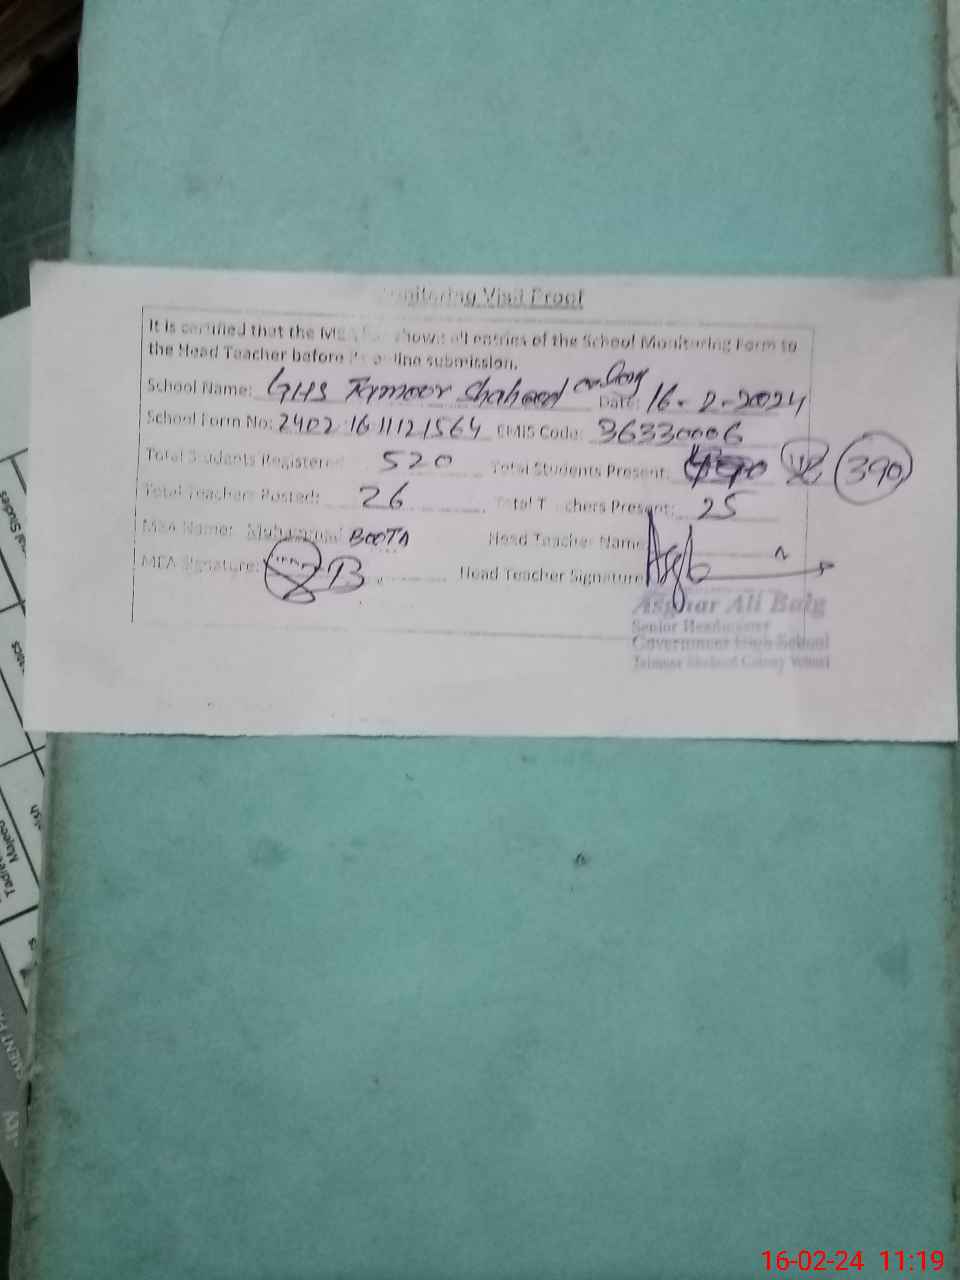 Monitoring Visit Proof
It is certified that the MEA has shown all entries of the School Monitoring Form to
the Head Teacher before its online submission.
School Name: GHS Taimoor Shaheed Date: 16-2-2024
School Form No: 2402 1611121564 EMIS Code: 36330006
Total Students Registered 520 Total Students Present: 390
Total Teachers Posted: 26 Total Teachers Present: 25
MEA Name: Muhammad BOOTA Head Teacher Name
MEA Signature: Head Teacher Signature
Asghar Ali Baig
Senior Headmaster
Government High School
Taimoor Shaheed Colony
16-02-24 11:19